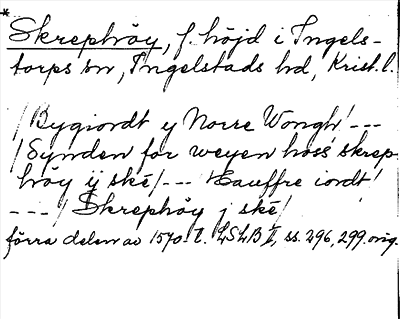 *
Skrephöy, f. höjd i Ingels-
torps sn, Ingelstads hd, Krist. l.
/Bygiordt y Norre Wongh/ ---
/Synden for weyen hoss skrep-
höy ij ske/ --- Hauffre iordt/
--- / Skrephöy j ske/
förra delen av 1570-t. LSLB II, ss. 296, 299. orig.